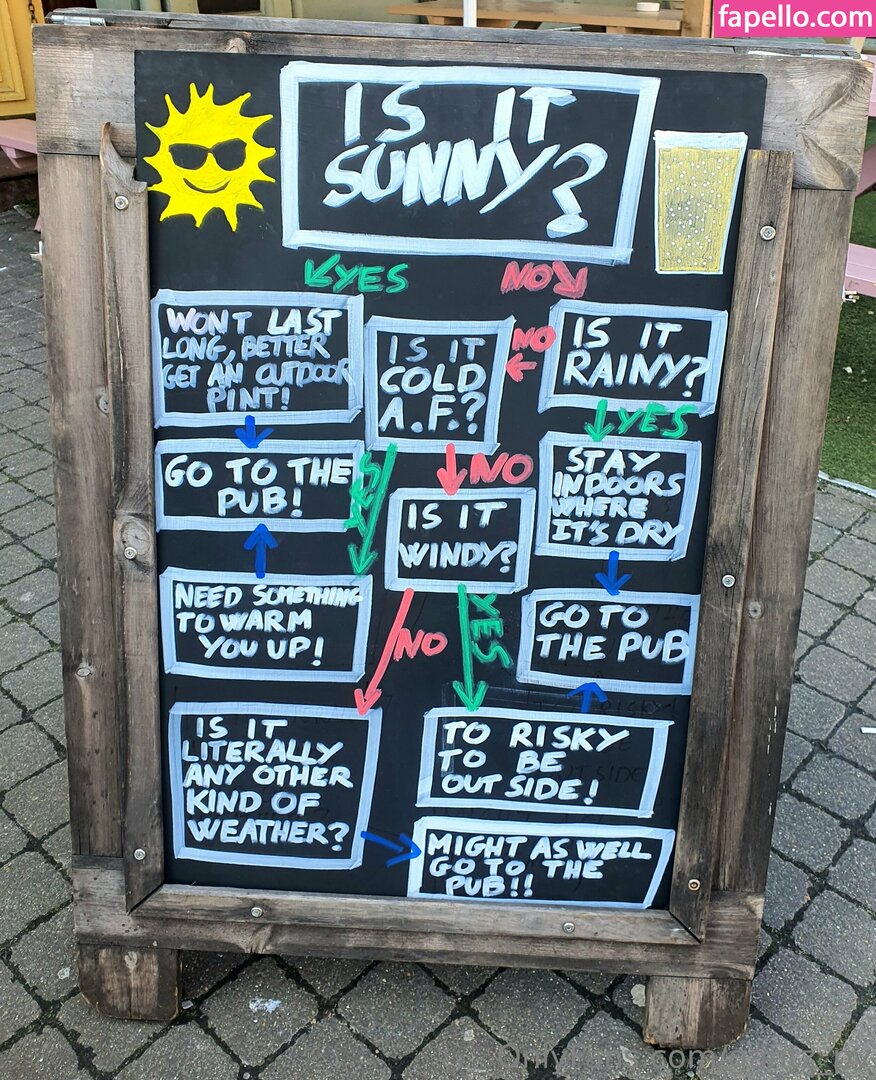 fapello.com
IS IT
SUNNY?
YES
NO
WONT LAST
LONG, BETTER
GET AN OUTDOOR
PINT!
IS IT
COLD
A.F.?
NO
IS IT
RAINY?
YES
GO TO THE
PUB!
YES
NO
STAY
INDOORS
WHERE
IT'S DRY
IS IT
WINDY?
NEED SOMETHING
TO WARM
YOU UP!
NO
YES
GO TO
THE PUB
IS IT
LITERALLY
ANY OTHER
KIND OF
WEATHER?
TO RISKY
TO BE
OUT SIDE!
MIGHT AS WELL
GO TO THE
PUB!!